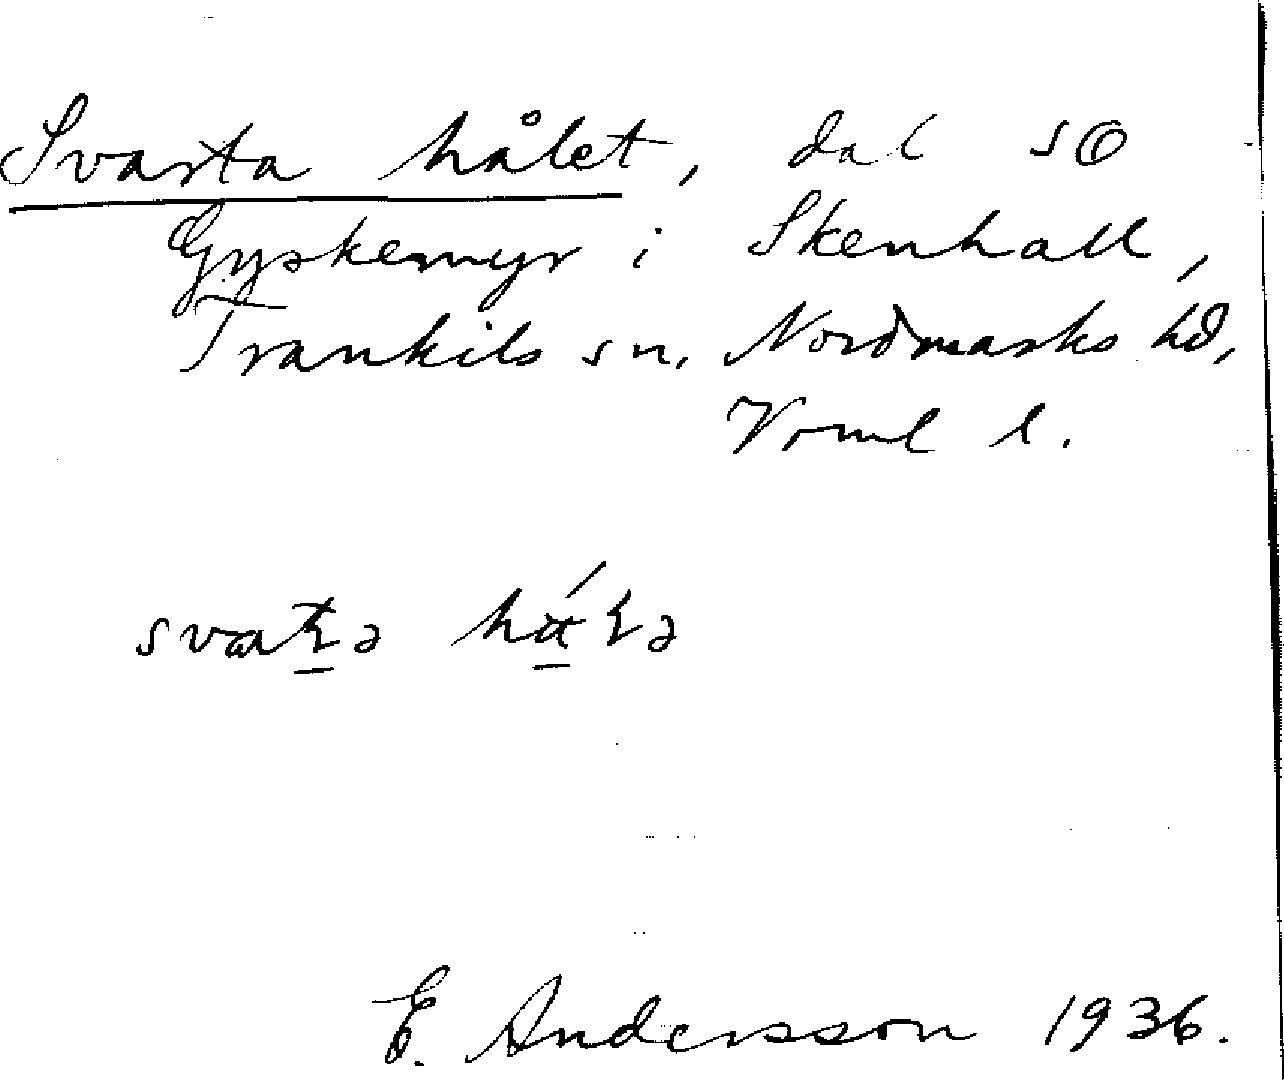 Svarta hålet, dal SO
Gyskemyr i Skenhall,
Trankils sn, Nordmarks hd,
Vrml l.
E. Andersson 1936.